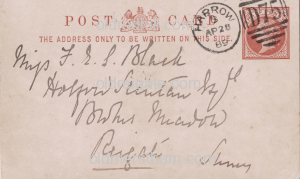 POST CARD
THE ADDRESS ONLY TO BE WRITTEN ON THIS SIDE.
HARROW
AP 28
86
D75
Miss F. E. S. Black
Brokes Meadow
Reigate
Surrey